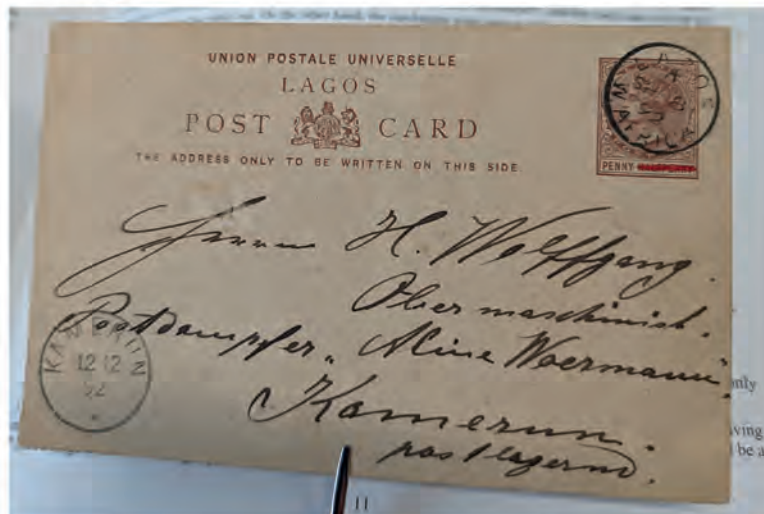 On the other hand, the
UNION POSTALE UNIVERSELLE
LAGOS
POST CARD
THE ADDRESS ONLY TO BE WRITTEN ON THIS SIDE
LAGOS
W. AFRICA
PENNY
Herrn H. Wolffgang.
Obermaschinist.
Postdampfer „Aline Woermann“
Kamerun.
postlagernd.
KAMERUN
12 12
92
only
ving
be a
11